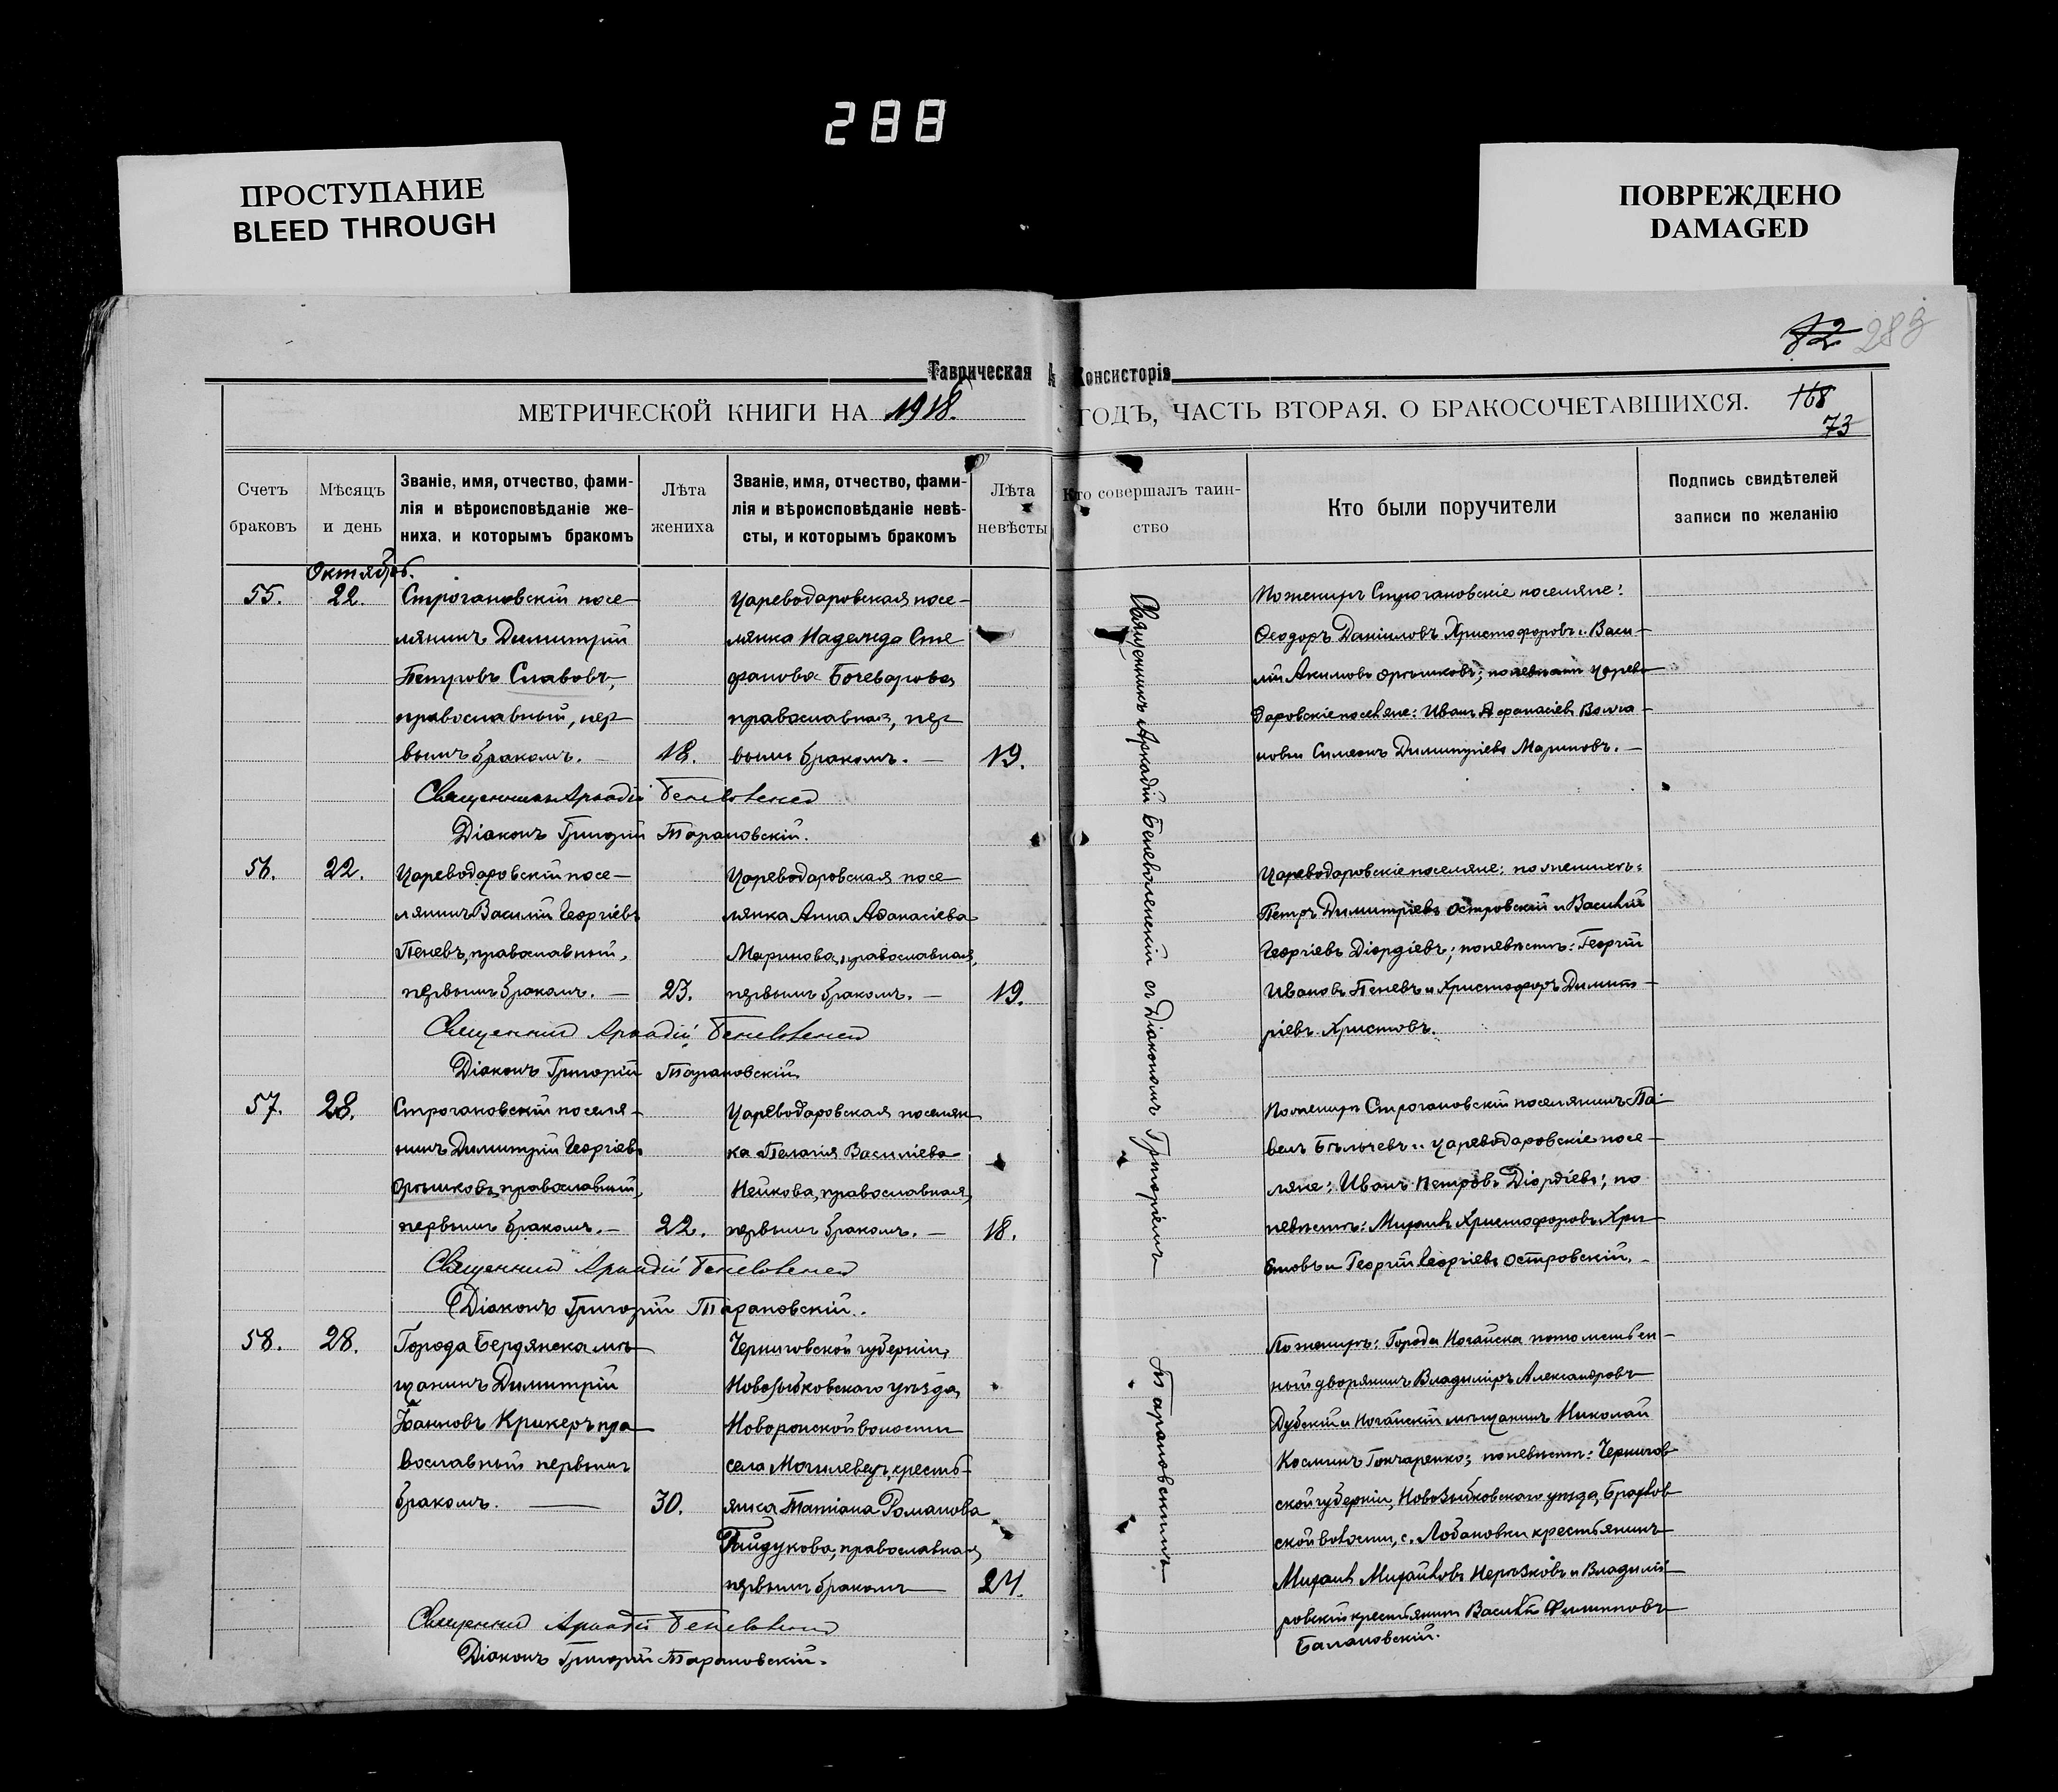 288
ПРОСТУПАНИЕ
BLEED THROUGH
ПОВРЕЖДЕНО
DAMAGED
82 283
Таврическая Консисторія
МЕТРИЧЕСКОЙ КНИГИ НА 1918. ГОДЪ, ЧАСТЬ ВТОРАЯ, О БРАКОСОЧЕТАВШИХСЯ. 168
73
Счетъ
браковъ
Мѣсяцъ
и день
Званіе, имя, отчество, фами-
лія и вѣроисповѣданіе же-
ниха, и которымъ бракомъ
Лѣта
жениха
Званіе, имя, отчество, фами-
лія и вѣроисповѣданіе невѣ-
сты, и которымъ бракомъ
Лѣта
невѣсты
Кто совершалъ таин-
ство
Кто были поручители
Подпись свидѣтелей
записи по желанію
Октябрь.
55. 22.
Строгановскій посе-
лянинъ Димитрій
Петровъ Славовъ,
православный, пер
вымъ бракомъ. — 18.
Цареводаровская посе-
лянка Надежда Сте
фанова Бочеварова
православная, пер
вымъ бракомъ. — 19.
По женихѣ Строгановскіе поселяне:
Ѳеодоръ Даніиловъ Христофоровъ и Васи-
лій Акимовъ Орѣшковъ; по невѣстѣ Царево
даровскіе поселяне: Иванъ Афанасіевъ Волка-
новъ и Симеонъ Димитріевъ Мариновъ. —
Священникъ Аркадій Беневоленскій
Діаконъ Григорій Тарановскій.
56. 22.
Цареводаровскій посе-
лянинъ Василій Георгіевъ
Пеневъ, православный,
первымъ бракомъ. — 23.
Цареводаровская посе
лянка Анна Аѳанасіева
Маринова, православная,
первымъ бракомъ. — 19.
Цареводаровскіе поселяне: по женихѣ:
Петръ Димитріевъ Островскій и Василій
Георгіевъ Діордіевъ; по невѣстѣ: Георгій
Ивановъ Пеневъ и Христофоръ Димит-
ріевъ Христовъ.
Священникъ Аркадій Беневоленскій
Діаконъ Григорій Тарановскій
57. 28.
Строгановскій поселя-
нинъ Димитрій Георгіевъ
Орѣшковъ, православный,
первымъ бракомъ. — 22.
Цареводаровская поселян
ка Пелагія Василіева
Нейкова, православная,
первымъ бракомъ. — 18.
По женихѣ Строгановскій поселянинъ Па-
велъ Бѣльчевъ и Цареводаровскіе посе-
ляне: Иванъ Петровъ Діордіевъ; по
невѣстѣ: Михаилъ Христофоровъ Хри-
стовъ и Георгій Георгіевъ Островскій. —
Священникъ Аркадій Беневоленскій
Діаконъ Григорій Тарановскій.
58. 28.
Города Бердянска мѣ
щанинъ Димитрій
Іоанновъ Крикеръ пра
вославный первымъ
бракомъ. — 30.
Черниговской губерніи,
Новозыбковскаго уѣзда,
Новоропской волости
села Могилевецъ, кресть-
янка Татіана Романова
Гайдукова, православная,
первымъ бракомъ — 24.
По женихѣ: Города Ногайска потомствен-
ный дворянинъ Владиміръ Александровъ
Дубскій и Ногайскій мѣщанинъ Николай
Косминъ Гончаренко; по невѣстѣ: Чернигов
ской губерніи, Новозыбковскаго уѣзда,
ской волости, с. Лобановки крестьянинъ
Михаилъ Михайловъ и Владимі-
ровскій крестьянинъ Василій Филипповъ
Балановскій.
Священникъ Аркадій Беневоленскій
Діаконъ Григорій Тарановскій.
Священникъ Аркадій Беневоленскій съ Діакономъ Григоріемъ Тарановскимъ